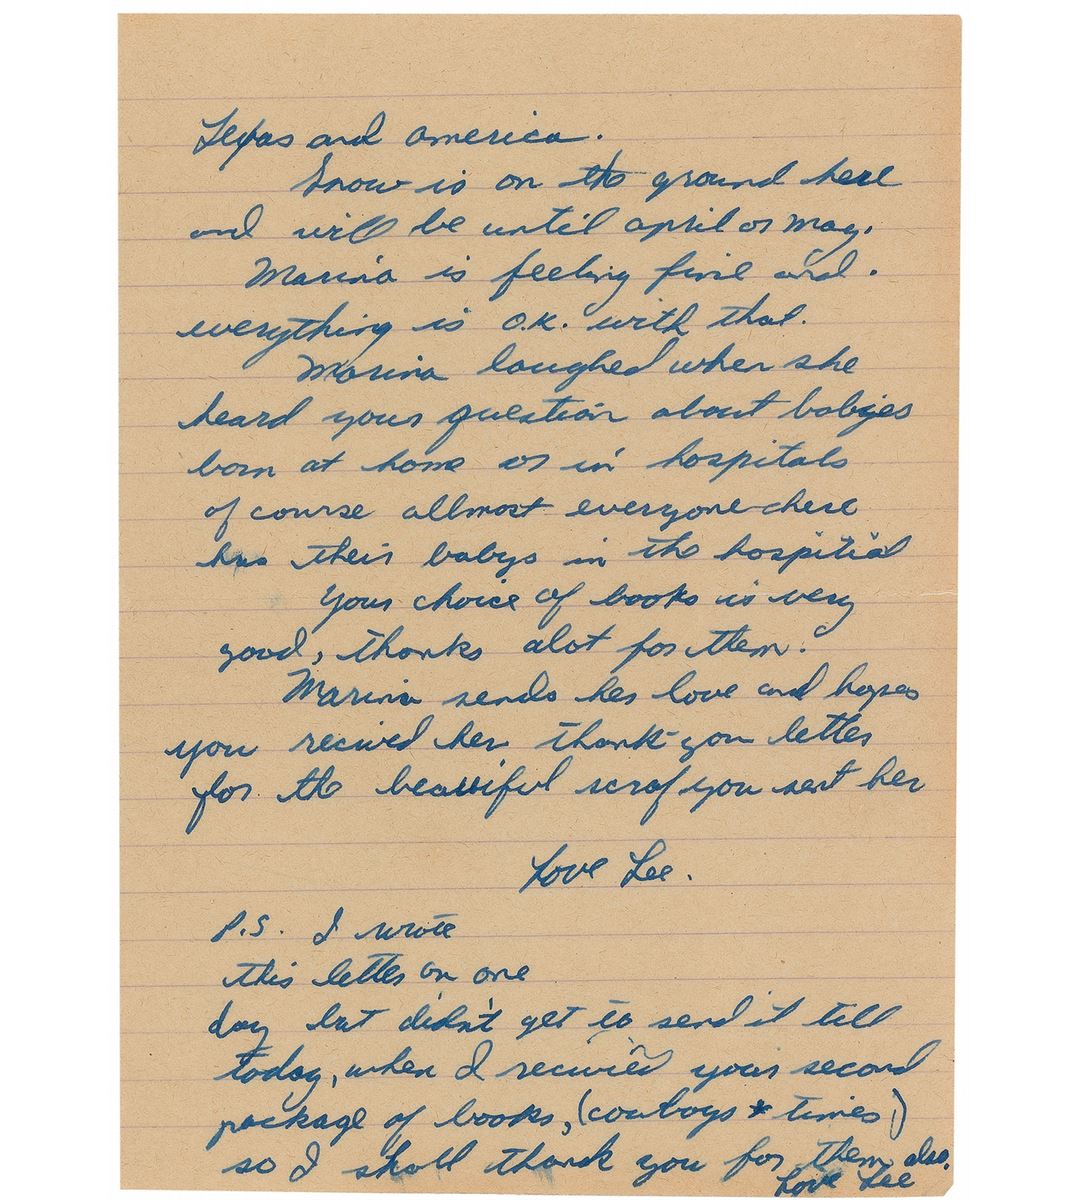 Texas and america.
Snow is on the ground here
and will be until april or may.
Marina is feeling fine and.
everything is o.k. with that.
Marina laughed when she
heard your question about babijes
born at home or in hospitals
of course allmost everyone here
has their babys in the hospitial
Your choice of books is very
good, thanks alot for them.
Marina sends her love and hopes
you recived her thank-you letter
for the beautiful scraf you sent her
Love Lee.
P.S. I wrote
this letter on one
day but didn't get to send it till
today, when I recivied your second
package of books, (cowboys * times)
so I shall thank you for them also.
Love Lee